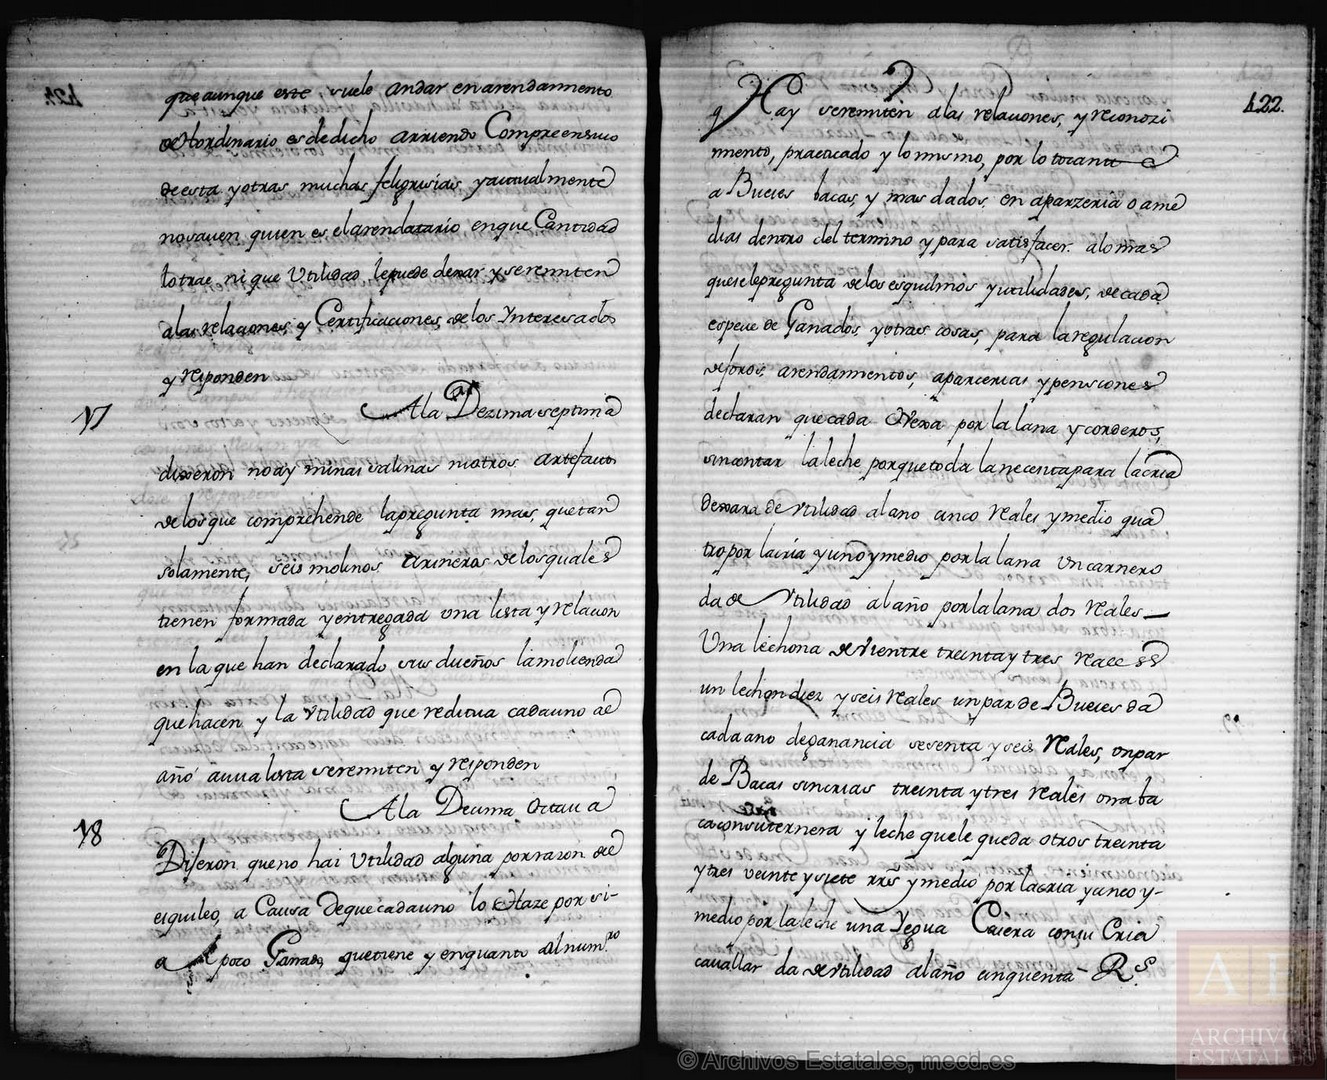 que aunque este, suele andar en arrendamento
extordinario es de dicho arriendo Compreensivo
de esta y otras muchas feligrisias y actualmente
no saven quien es el arendatario enque Cantidad
lo trae ni que Utilidad le puede dexar y se remiten
a las relaciones y Certificaciones de los Interesados
y responden
17
A la Dezima septima
dixeron no ay minas salinas ni otros artefautos
de los que comprehende la pregunta mas, que tan
solamente, seis molinos arineros de los quales
tienen formada y entregada una lista y relacion
en la que han declarado sus dueños la molienda
que hacen y la Utilidad que reditua cada uno al
año a cuia lista se remiten y responden
18
A la Decima Octava
Dijeron que no hai Utilidad alguna por razon del
esquileo, a Causa de que cada uno lo Haze por si-
a poco Ganado, que tiene y en quanto al num.ro
422.
q Hay se remiten a las relaciones, y reconozi
miento, practicado y lo mismo, por lo tocante
a Bueies bacas, y mas dados en aparzeria o ame
dias dentro del termino y para satisfacer a lo mas
que se le pregunta de los esquilmos y utilidades, de cada
especie de Ganados y otras cosas, para la regulacion
de foros, arendamientos, aparcerias y pensiones
declaran que cada Obexa por la lana y corderos,
sin contar la leche porque toda la necesita para la cria
dexara de Utilidad al año cinco reales y medio qua
tro por la cria y uno y medio por la lana Un carnero
da de Utilidad al año por la lana dos reales
Una lechona de vientre treinta y tres reales
un lechon diez y seis reales un par de Bueies da
cada año de ganancia sesenta y seis reales, un par
de Bacas sin crias treinta y tres reales una ba
ca con su ternera y leche que le queda otros treinta
y tres veinte y siete rrs y medio por la cria y cinco y-
medio por la leche una Yegua Casera con su Cria
cavallar da de utilidad al año cinquenta Rs.
© Archivos Estatales, mecd.es
AE
ARCHIVOS
ESTATALES